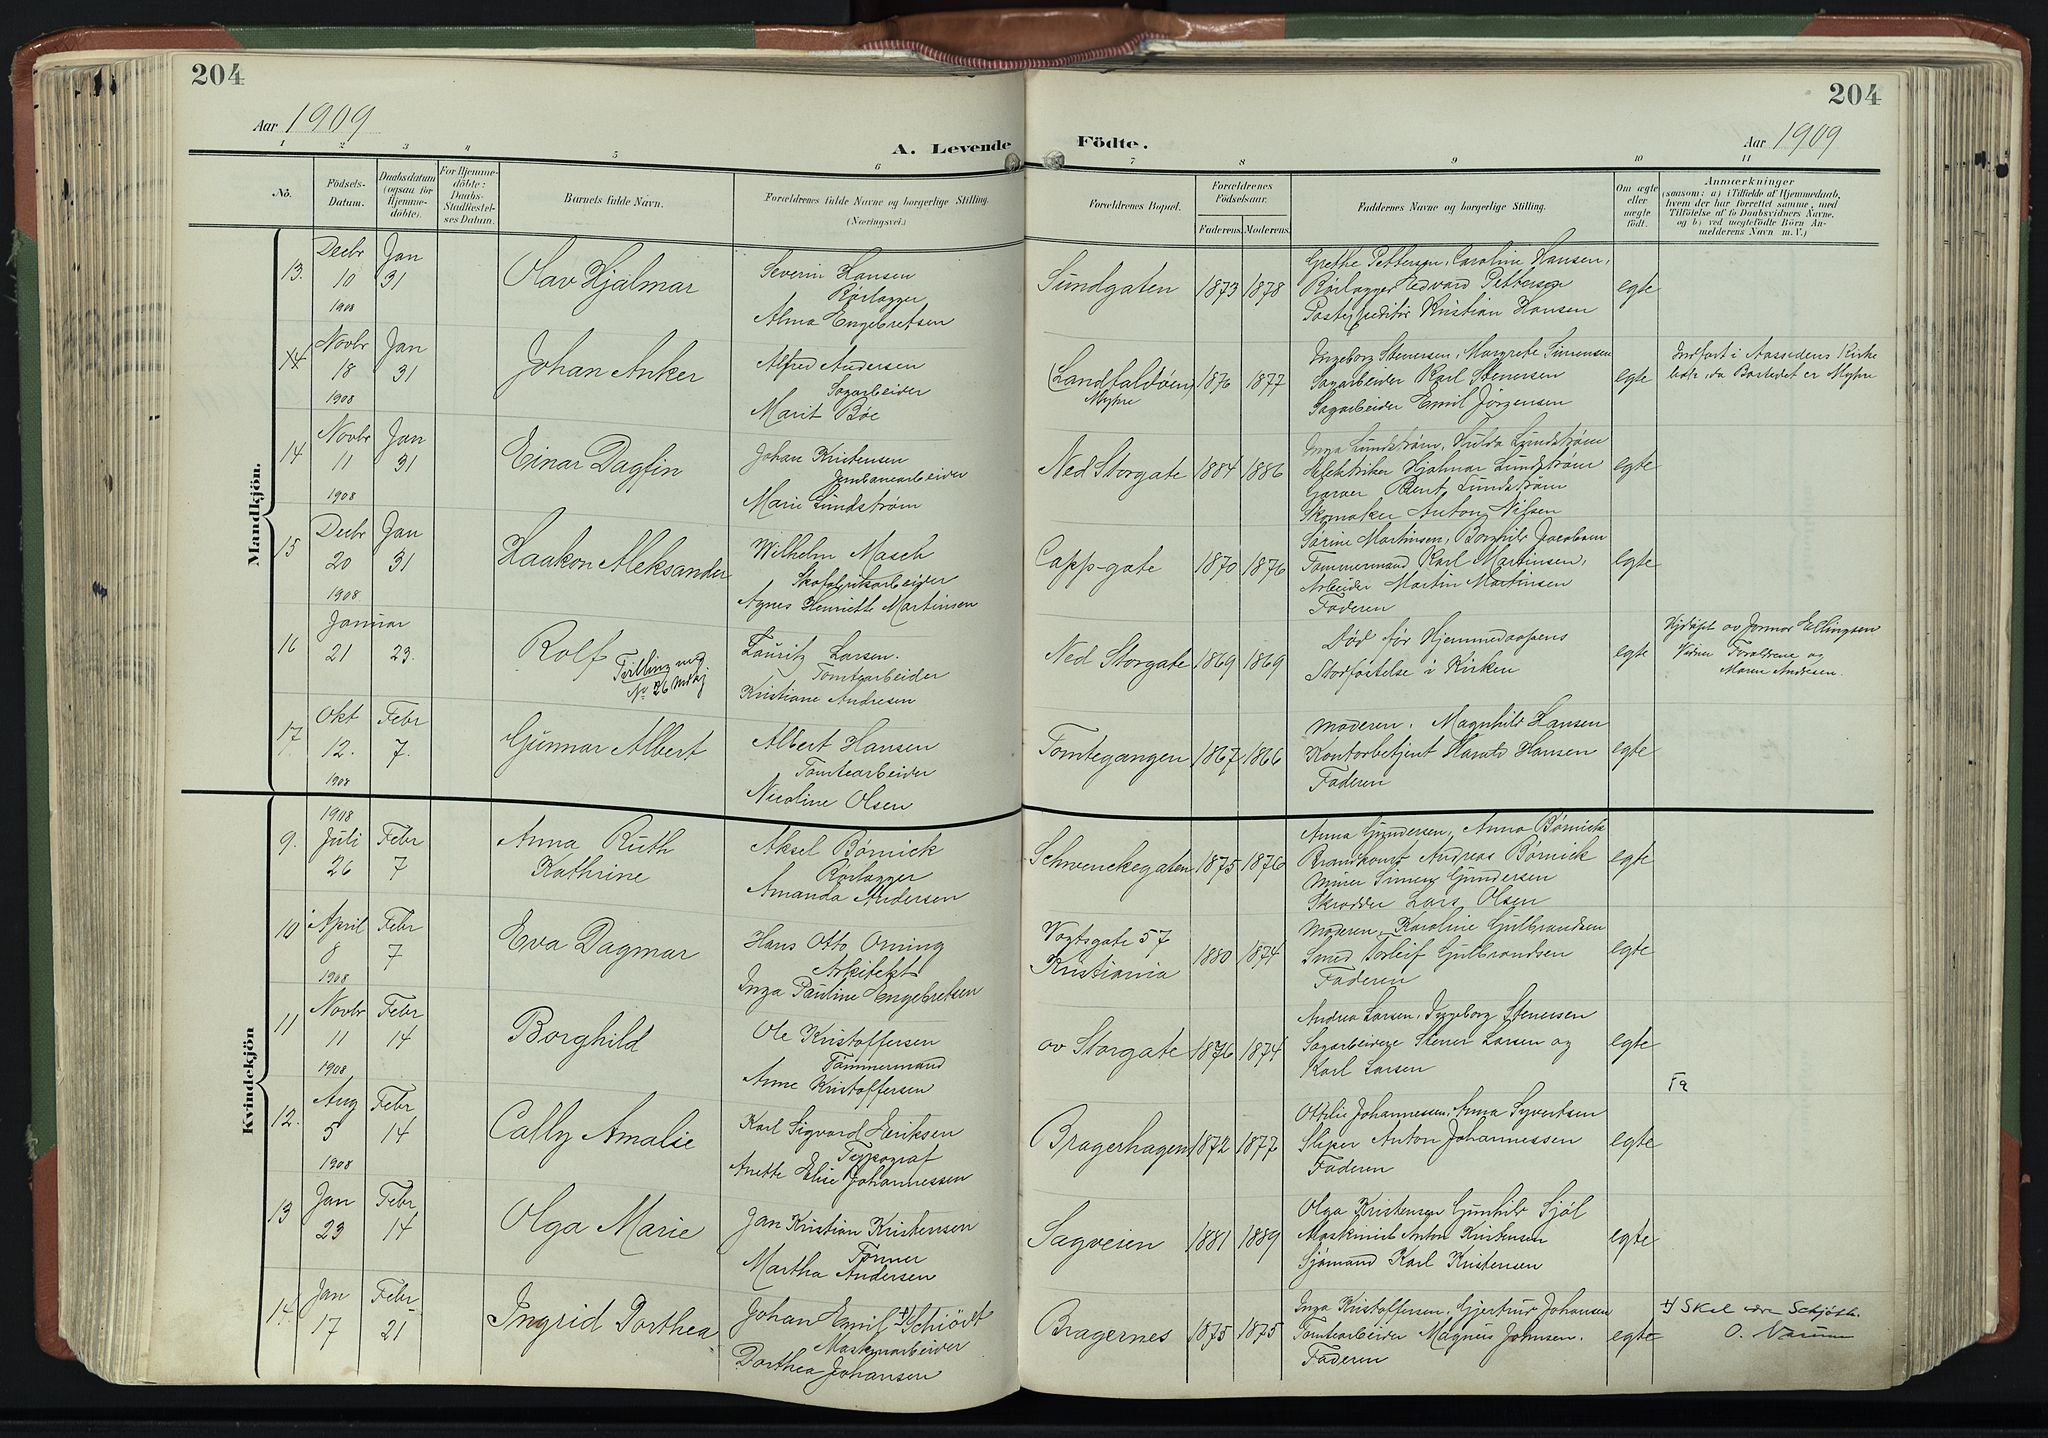 204
204
Aar 1909
A. Levende Födte.
Aar 1909
1 2 3 4 5 6 7 8 9 10 11
No.
Födsels-Datum.
Daabsdatum (ogsaa for Hjemmedöbte).
For Hjemmedöbte: Daabs-Stadfæstelses Datum.
Barnets fulde Navn.
Forældrenes fulde Navne og borgerlige Stilling. (Næringsvei.)
Forældrenes Bopæl.
Forældrenes Födselsaar.
Faderens. Moderens.
Faddernes Navne og borgerlige Stilling.
Om ægte eller uægte födt.
Anmærkninger
(saasom: a) i Tilfælde af Hjemmedaab, hvem der har forrettet samme, med Tilföielse af to Daabsvidners Navne, og b) ved uægtefödte Börn Anmelderens Navn m. V.)
Mandkjön.
13. Decbr 10 1908
Jan 31
Olav Hjalmar
Severin Hansen
Rørlægger
Alma Engebretsen
Sundgaten
1873 1878
Grethe Pettersen, Caroline Hansen,
Rørlægger Edvard Pettersen
Postexpeditør Kristian Hansen
egte
14 Novbr 18 1908
Jan 31
Johan Anker
Alfred Andersen
Sagarbeider
Marit Bøe
(Landfaldøen)
Myhre
1876 1877
Ingeborg Stenersen, Margrete Simensen
Sagarbeider Karl Stenersen
Sagarbeider Emil Jörgensen
egte
Indført i Aassidens Kirke
bok, da Bostedet er Myhre
14 Novbr 11 1908
Jan 31
Einar Dagfin
Johan Kristensen
Jernbanearbeider
Marie Lundstrøm
Ned Storgate
1884 1886
Inga Lundstrøm, Hulda Lundstrøm
Elektriker Hjalmar Lundstrøm
Garver Bent Lundstrøm
Skomaker Anton Nilsen
egte
15 Decbr 20 1908
Jan 31
Haakon Aleksander
Wilhelm Masch
Skofabrikarbeider
Agnes Henriette Martinsen
Capp-gate
1870 1876
Sarine Martinsen, Borghild Jacobsen
Tømmermand Karl Martinsen,
Arbeider Martin Martinsen
Faderen
egte
16 Januar 21
23.
Rolf
Tvilling med
No 26 Mdkj
Lauritz Larsen.
Tomtearbeider
Kristiane Andresen
Ned Storgate
1869 1869
Død før Hjemmedaapens
Stadfæstelse i Kirken
egte
Hjdøpt av Jormor Ellingsen
Vidner Forældrene og
Maren Andresen.
17. Okt 12. 1908
Febr 7.
Gunnar Albert
Albert Hansen
Tomtearbeider
Nicoline Olsen
Tomtegangen
1867 1866
Moderen, Magnhild Hansen
Kontorbetjent Harald Hansen
Faderen
egte
Kvindekjön
9. 1908 Juli 26
Febr 7
Anna Ruth
Kathrine
Aksel Børnick
Rørlægger
Amanda Andersen
Schwenckegaten
1875 1876
Anna Gundersen, Anna Børnick
Brandkonst Andreas Børnick
Murer Simen Gundersen
Skrædder Lars Olsen
egte
10 April 8 1908
Febr 7
Eva Dagmar
Hans Otto Orning
Arkitekt
Inga Pauline Engebretsen
Vogtsgate 57
Kristiania
1880 1874
Moderen, Karoline Gulbrandsen
Smed Torleif Gulbrandsen
Faderen
egte
11 Novbr 11 1908
Febr 14
Borghild
Ole Kristoffersen
Tømmermand
Anne Kristoffersen
ov Storgate
1876 1874
Andrea Larsen, Ingeborg Stenersen
Sagarbeidere Stener Larsen og
Karl Larsen
egte
12. Aug 5 1908
Febr 14
Cally Amalie
Karl Sigvard Eriksen
Typograf
Anette Elise Johannessen
Bragerhagen
1872 1877
Ottilie Johannessen, Anna Syvertsen
Sliper Anton Johannessen
Faderen
egte
13 Jan 23
Febr 14
Olga Marie
Jan Kristian Kristensen
Tønner
Martha Andersen
Sagveien
1881 1889
Olga Kristensen Gunhild Sjøl
Maskinist Anton Kristensen
Sjømand Karl Kristensen
egte
14. Jan 17
Febr 21
Ingrid Dorthea
Johan Emil Schiödt
Maskinarbeider
Dorthea Johansen
Bragernes
1875 1875
Inga Kristoffersen, Gjertrud Johansen
Tomtearbeider Magnus Johnsen.
Faderen
egte
Skal være
O.